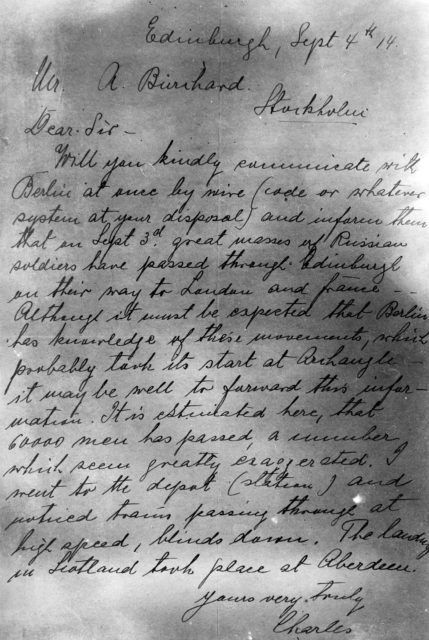 Edinburgh, Sept 4th 14.
Mr. A. Burchard.
Stockholm
Dear Sir –
Will you kindly communicate with
Berlin at once by wire (code or whatever
system at your disposal) and inform them
that on Sept 3d. great masses of Russian
soldiers have passed through Edinburgh
on their way to London and France –
Although it must be expected that Berlin
has knowledge of these movements, which
probably took its start at Archangle –
it may be well to forward this infor-
mation. It is estimated here, that
60000 men has passed, a number
which seem greatly exaggerated. I
went to the depot (station) and
noticed trains passing through at
high speed, blinds down. The landing
in Scotland took place at Aberdeen.
Yours very truly
Charles